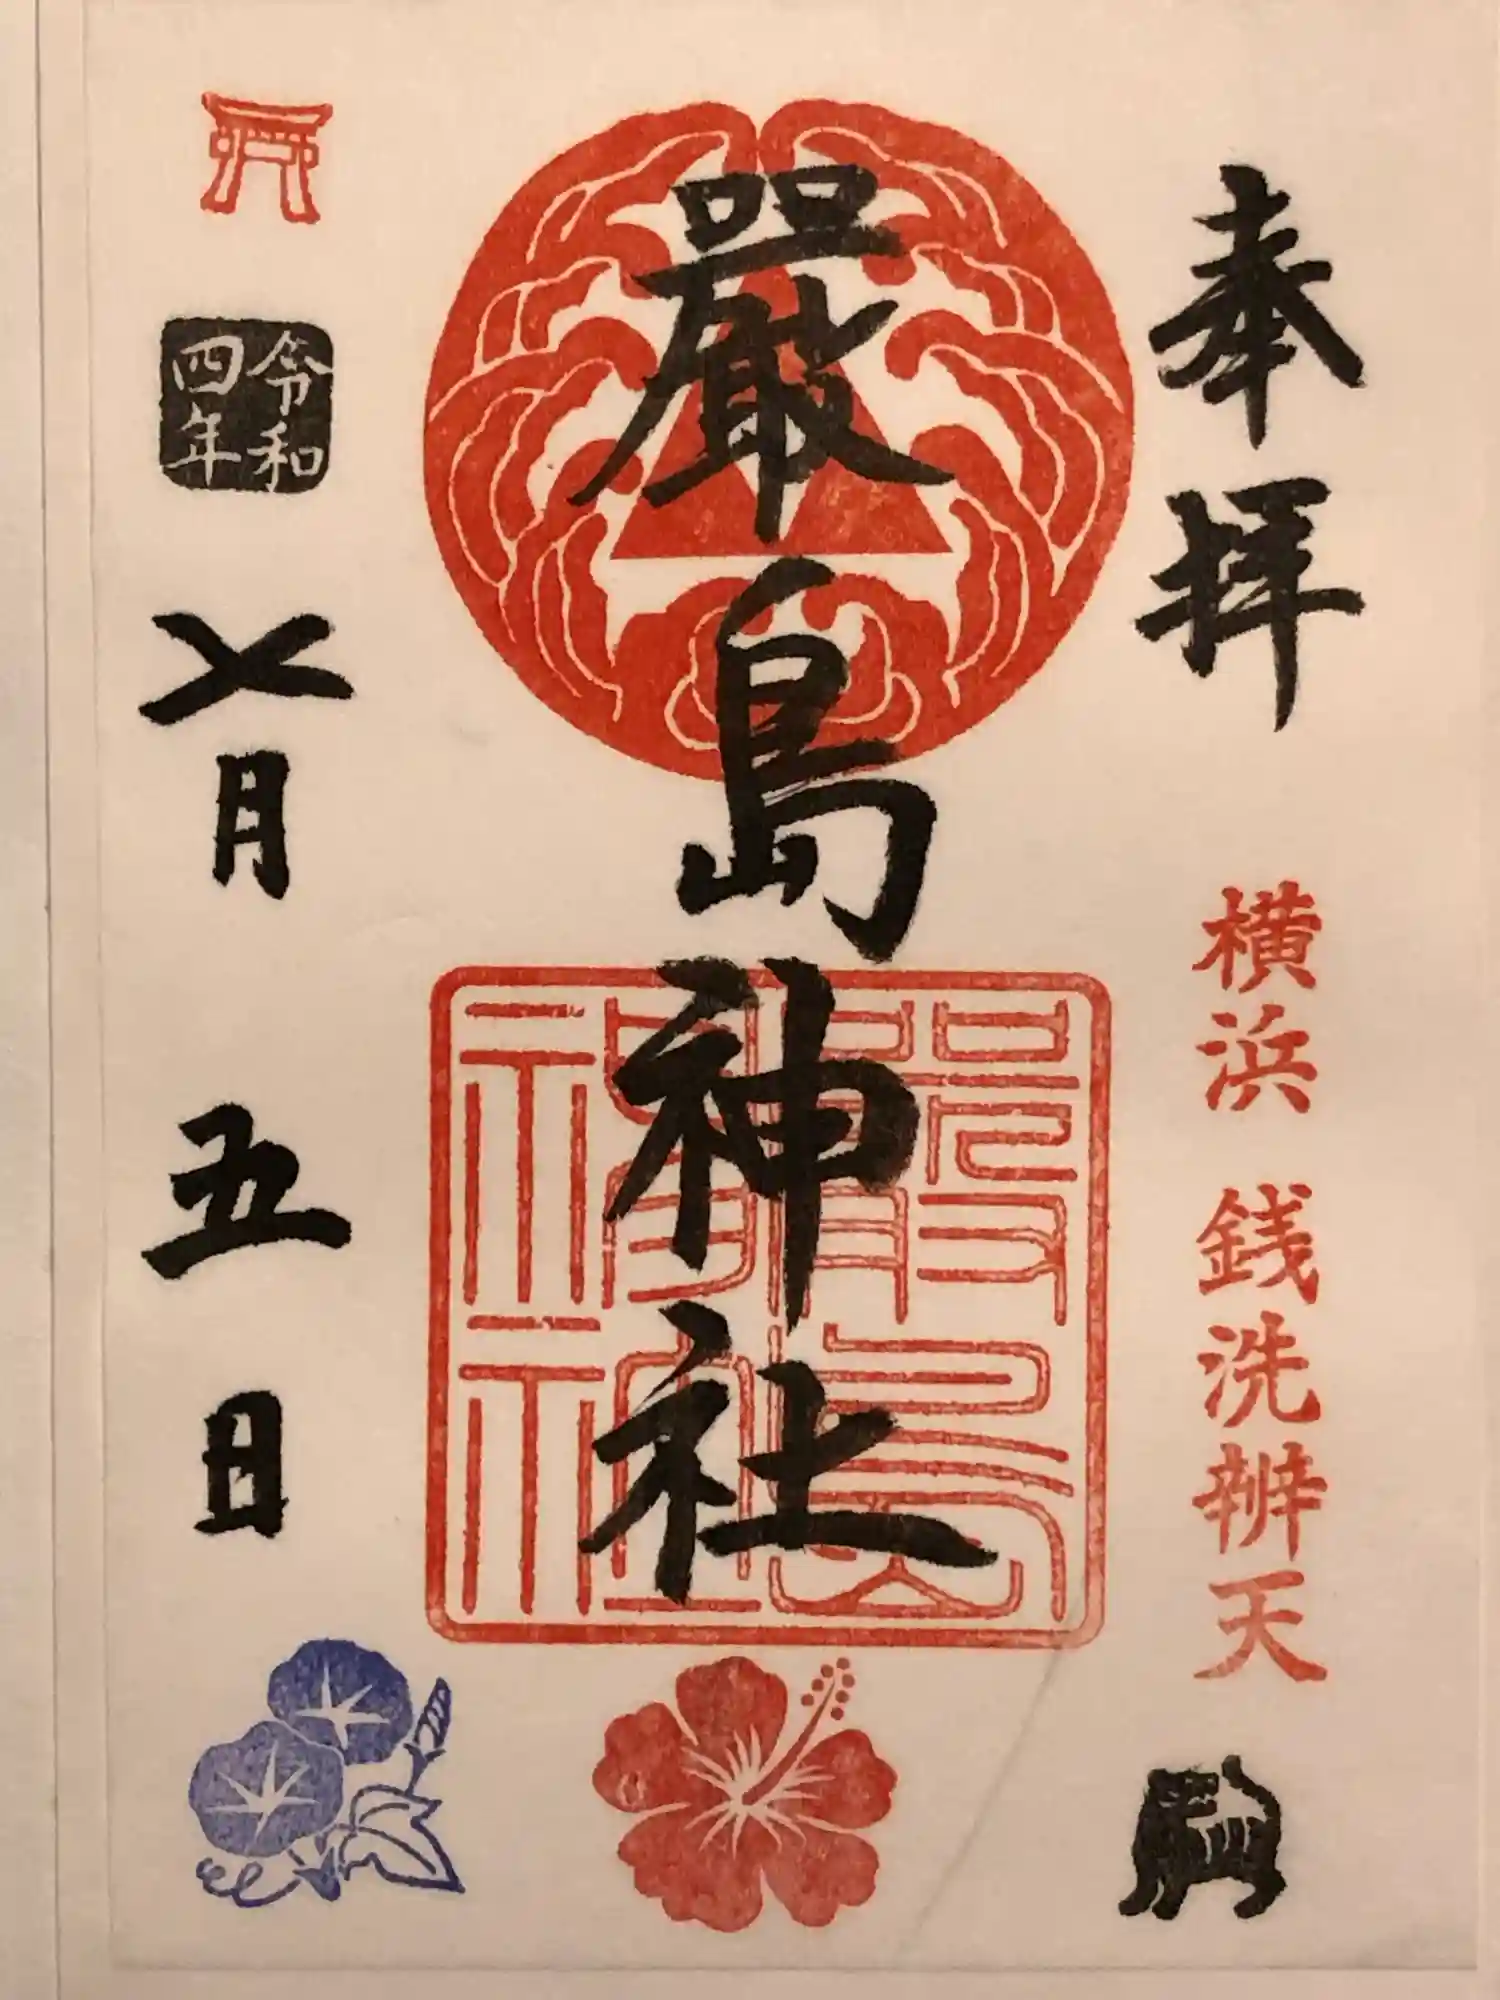 奉拝
横浜 銭洗辨天
嚴島神社
嚴島神社
令和
四年
七月
五日